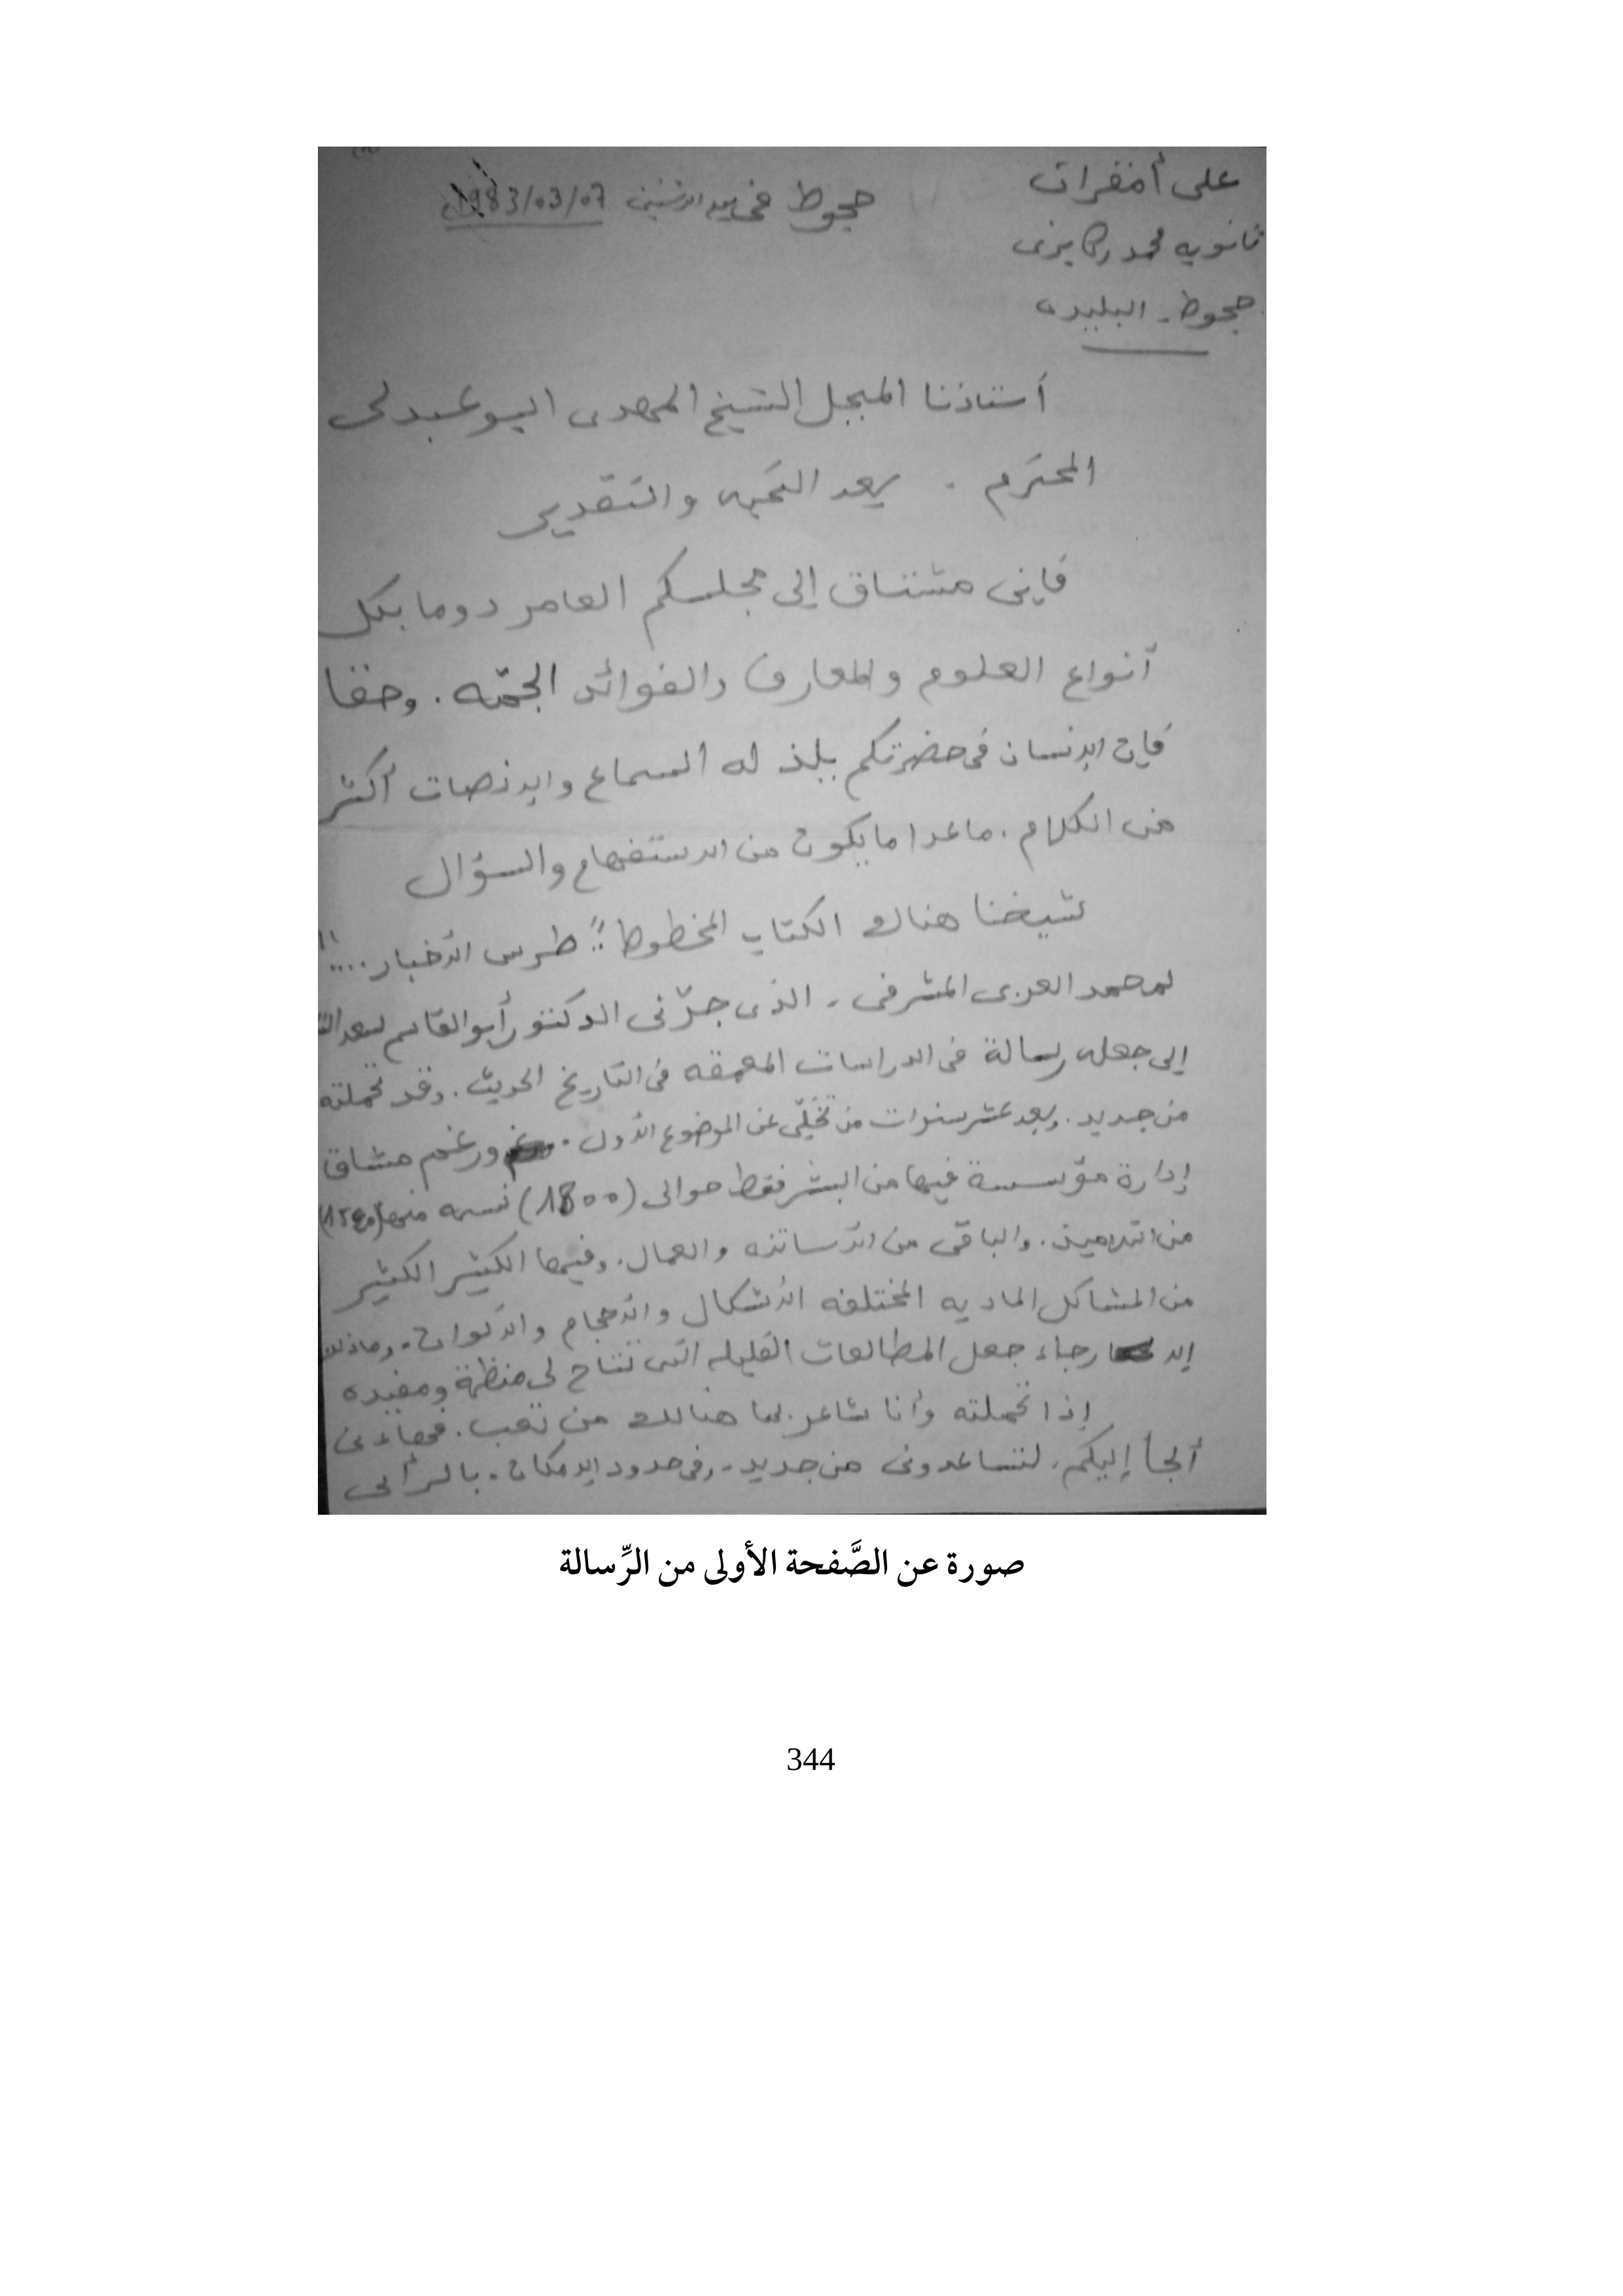 على أمقران
حجوط في يوم الاثنين 1983/03/07
ثانويه محمد ركايزى
حجوط - البليده
أستاذنا المبجل الشيخ المهدى البوعبدلى
المحترم . بعد التحيه والتقدير
فإنى مشتاق إلى مجلسكم العامر دوما بكل
أنواع العلوم والمعارف والفوائد الجمّه . وحقا
فإن الإنسان فى حضرتكم يلذ له السماع والإنصات أكثر
من الكلام . ماعدا ما يكون من الاستفهام والسؤال
شيخنا هناك الكتاب المخطوط : " طرس الأخبار .... "
لمحمد العربى المشرفى - الذى جرّنى الدكتور أبو القاسم سعد الله
إلى جعله رسالة فى الدراسات المعمقه فى التاريخ الحديث . وقد تحملته
من جديد . وبعد عشر سنوات من تخلّى عن الموضوع الأول . ورغم مشاق
إدارة مؤسسة فيها من البشر فقط حوالى (1800) نسمه منها
من التلاميذ . والباقى من الأساتذه والعمال . وفيها الكثير الكثير
من المشاكل الماديه المختلفه الأشكال والأحجام والألوان - وما ذلك
إلا رجاء جعل المطالعات القليله التى تتاح لى منظمة ومفيده
إذا تحملته وأنا شاعر بما هنالك من تعب .
ألجأ إليكم ، لتساعدونى من جديد - وفى حدود الإمكان - بالرأى
صورة عن الصَّفحة الأولى من الرِّسالة
344